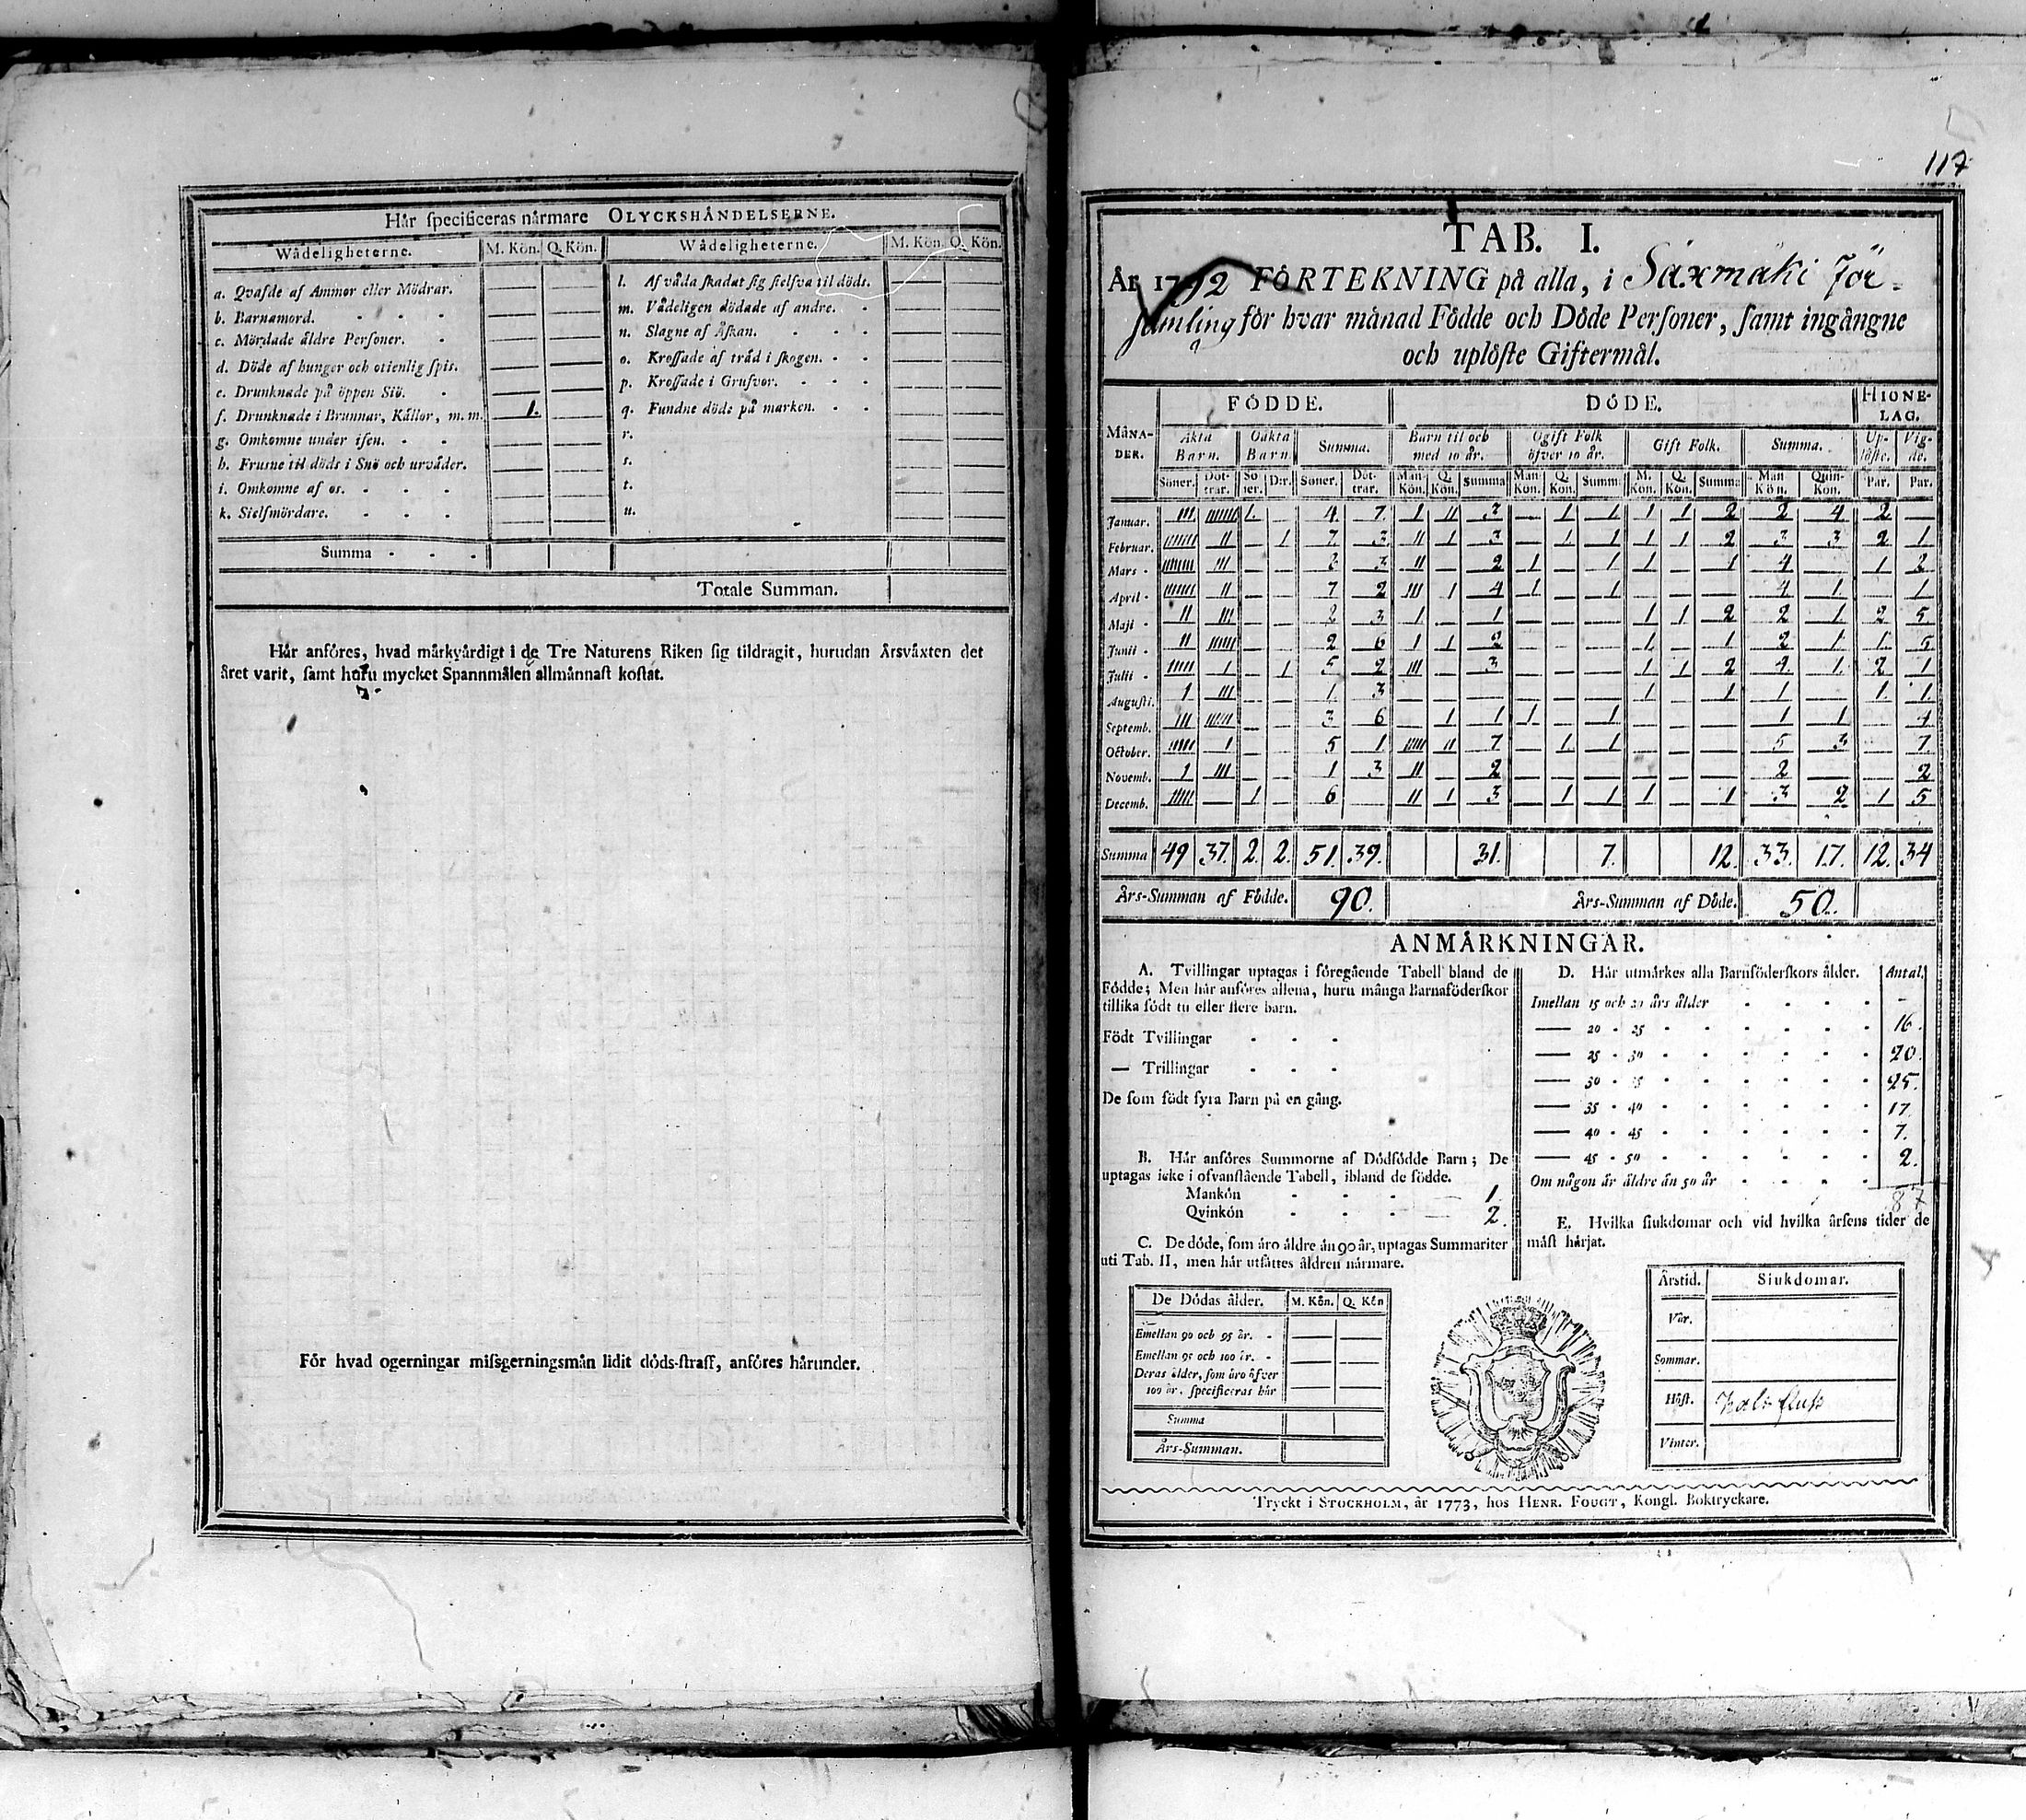 Här specificeras närmare OLYCKSHÄNDELSERNE.
Wådeligheterne. M. Kön. Q. Kön. Wådeligheterne. M. Kön. Q. Kön.
a. Qvafde af Ammor eller Mödrar. — — l. Af våda skadat sig sielfva til döds. — —
b. Barnamord. — — m. Vådeligen dödade af andre. — —
c. Mördade äldre Personer. — — n. Slagne af Åskan. — —
d. Döde af hunger och otienlig spis. — — o. Krossade af träd i skogen. — —
e. Drunknade på öppen Siö. — — p. Krossade i Grufvor. — —
f. Drunknade i Brunnar, Källor, m. m. 1. — q. Fundne döde på marken. — —
g. Omkomne under isen. — — r.
h. Frusne til döds i Snö och urväder. — — s.
i. Omkomne af os. — — t.
k. Sielfmördare. — — u.
Summa
Totale Summan.
Här anföres, hvad märkvärdigt i de Tre Naturens Riken sig tildragit, hurudan Årsväxten det
året varit, samt huru mycket Spannmålen allmännast kostat.
För hvad ogerningar missgerningsmän lidit döds-straff, anföres härunder.
117
TAB. I.
År 1792 FÖRTEKNING på alla, i Saxmäki För-
samling för hvar månad Födde och Döde Personer, samt ingångne
och uplöste Giftermål.
MÅNADER. FÖDDE. DÖDE. HIONELAG.
Äkta Barn. Oäkta Barn. Summa. Barn til och med 10 år. Ogift Folk öfver 10 år. Gift Folk. Summa. Uplöste. Vigde.
Söner. Döttrar. Söner. D:r. Söner. Döttrar. Man Kön. Q. Kön. Summa Man Kön. Q. Kön. Summ. M. Kön. Q. Kön. Summa Man Kön. Quin-Kön. Par. Par.
Januar. III IIIIIII 1. — 4 7. 1 II 3 — 1 1 1 1 2 2 4 2 —
Februar. IIIIIII II — 1 7. 3 II 1 3 — 1 1 1 1 2 3 3 2 1
Mars III — — 3 II — 2 1 — 1 1 — 1 4 — 1 2
April IIIIIII II — — 7 2 III 1 4 1 — 1 — — — 4 1 — 1
Maji II III — — 2 3 1 — 1 — — — 1 1 2 2 1 2 5
Junii II IIIIII — — 2 6 1 1 2 — — — 1 — 1 2 1 1. 5
Julii IIIII 1 — 1 5 2 III — 3 — — — 1 1 2 4. 1. 2 1
Augusti. 1 III — — 1. 3 — — — — — — 1 — 1 1 — 1. 1.
Septemb. III IIIIII — — 3 6 — 1 1 1 — 1 — — — 1 1 — 4
October. IIIII 1 — — 5 1 IIIII II 7 — 1 1 — — — 5 3 — 7
Novemb. 1 III — — 1 3 II — 2 — — — — — — 2 — — 2
Decemb. IIIII — 1 — 6 II 1 3 — 1 1 1 — 1 3 2 1 5
Summa 49 37. 2. 2. 51. 39. 31. 7. 12. 33. 17. 12. 34
Års-Summan af Födde. 90. Års-Summan af Döde. 50.
ANMÄRKNINGAR.
A. Tvillingar uptagas i föregående Tabell bland de
Födde; Men här anföres allena, huru många Barnaföderskor
tillika födt tu eller flere barn.
Födt Tvillingar
— Trillingar
De som födt fyra Barn på en gång.
B. Här anföres Summorne af Dödfödde Barn; De
uptagas icke i ofvanstående Tabell, ibland de födde.
Mankön 1.
Qvinkön 2.
C. De döde, som äro äldre än 90 år, uptagas Summariter
uti Tab. II, men här utsättes åldren närmare.
De Dödas ålder. M. Kön. Q. Kön
Emellan 90 och 95 år. — —
Emellan 95 och 100 år. — —
Deras ålder, som äro öfver
100 år, specificeras här — —
Summa
Års-Summan.
D. Här utmärkes alla Barnföderskors ålder. Antal.
Imellan 15 och 20 års ålder –
— 20 - 25 16.
— 25 - 30 20.
— 30 - 35 25.
— 35 - 40 17
— 40 - 45 7.
— 45 - 50 2.
Om någon är äldre än 50 år
87
E. Hvilka siukdomar och vid hvilka årsens tider de
mäst härjat.
Årstid. Siukdomar.
Vår.
Sommar.
Höst.
Vinter.
Tryckt i STOCKHOLM, år 1773, hos HENR. FOUGT, Kongl. Boktryckare.